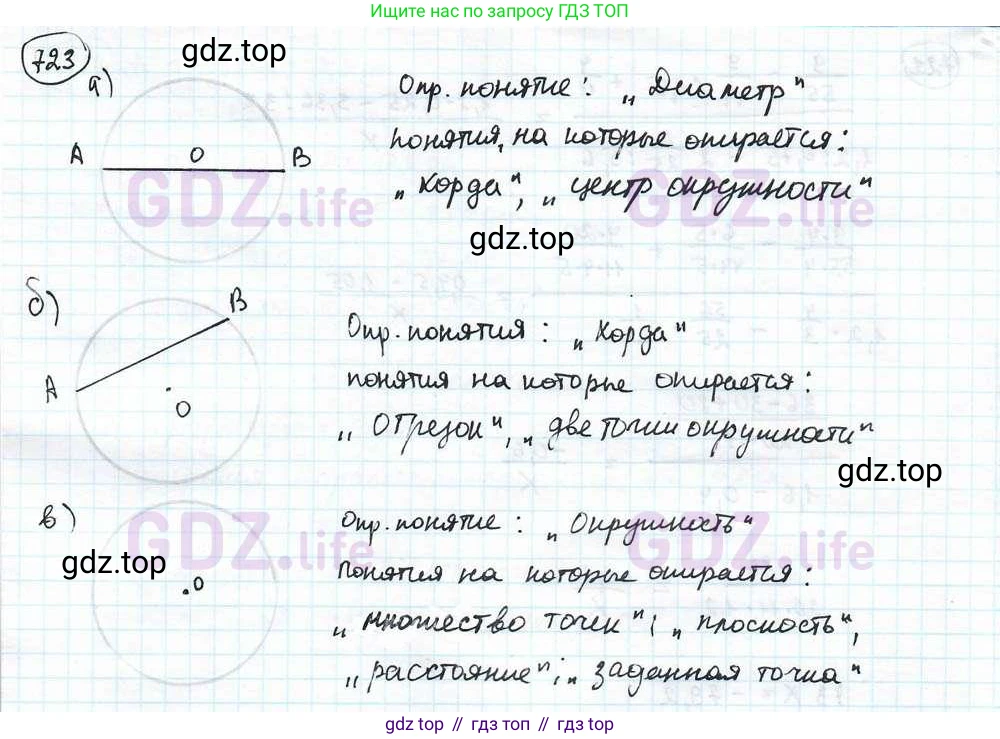 Ищите ответы по запросу ГДЗ ТОП
723
gdz.top
а)
A O B
Опр. понятие: „Диаметр"
понятия, на которые опирается:
„хорда", „центр окружности"
GDZ.life
GDZ.life
gdz.top
б)
A B O
Опр. понятия: „Хорда"
понятия на которые опирается:
„Отрезок", „две точки окружности"
gdz.top
в)
O
gdz.top
Опр. понятие: „Окружность"
GDZ.life
GDZ.life
понятия на которые опирается:
„множество точек"; „плоскость",
„расстояние"; „заданная точка"
gdz top // гдз топ // gdz top